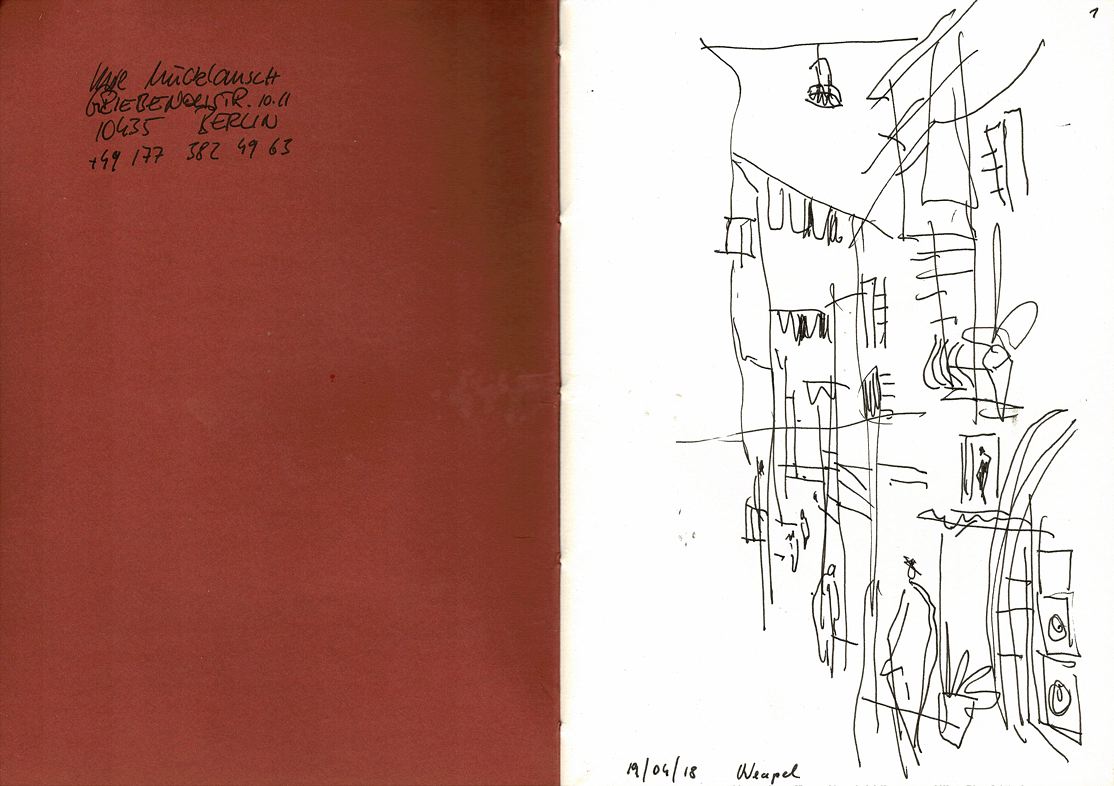 GRIEBENOWSTR. 10.11
10435 BERLIN
+49 177 382 49 63
1
19/04/18 Neapel